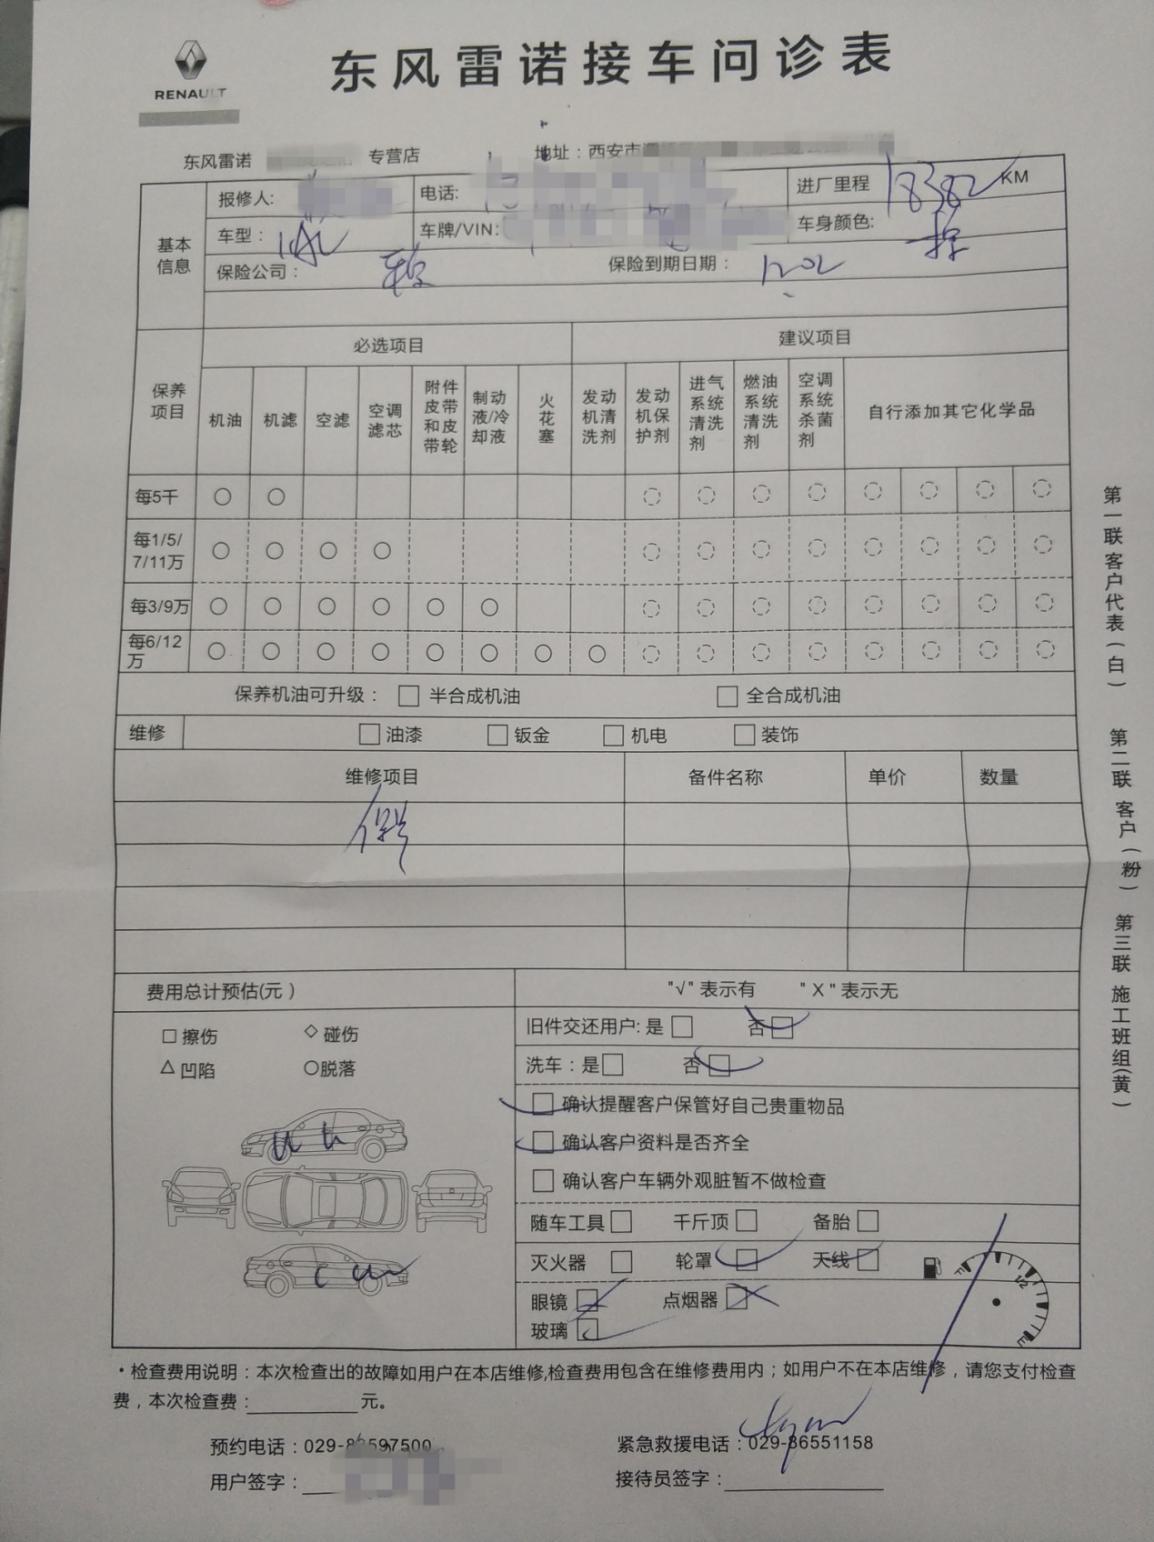 RENAULT
东风雷诺接车问诊表
东风雷诺 专营店 地址：西安市
基本信息
报修人: 电话: 进厂里程 18382 KM
车型： 车牌/VIN: 车身颜色:
保险公司： 保险到期日期： 12.02
保养项目
必选项目 建议项目
机油 机滤 空滤 空调滤芯 附件皮带和皮带轮 制动液/冷却液 火花塞 发动机清洗剂 发动机保护剂 进气系统清洗剂 燃油系统清洗剂 空调系统杀菌剂 自行添加其它化学品
每5千
每1/5/7/11万
每3/9万
每6/12万
保养机油可升级： 半合成机油 全合成机油
维修 油漆 钣金 机电 装饰
维修项目 备件名称 单价 数量
保养
费用总计预估(元) "√" 表示有 "X" 表示无
擦伤 碰伤
凹陷 脱落
旧件交还用户: 是 否
洗车：是 否
确认提醒客户保管好自己贵重物品
确认客户资料是否齐全
确认客户车辆外观脏暂不做检查
随车工具 千斤顶 备胎
灭火器 轮罩 天线
眼镜 点烟器
玻璃
F 1/2 E
•检查费用说明：本次检查出的故障如用户在本店维修,检查费用包含在维修费用内；如用户不在本店维修，请您支付检查
费，本次检查费：元。
预约电话：029-86597500 紧急救援电话：029-86551158
用户签字： 接待员签字：
第一联 客户代表(白) 第二联 客户(粉) 第三联 施工班组(黄)